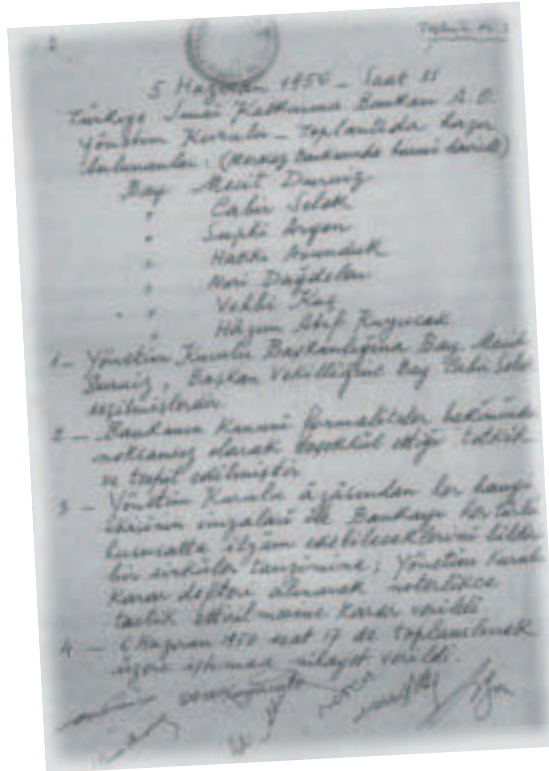 Toplantı No: 1
5 Haziran 1950 - Saat 11
Türkiye Sınai Kalkınma Bankası A.O.
Yönetim Kurulu - Toplantıda hazır
bulunanlar: (Merkez Bankasında)
Bay Mecit Duruiz
" Cabir Selek
" Suphi Argon
" Hakkı Avunduk
" Nuri Dağdelen
" Vehbi Koç
" Hâzım Atıf Kuyucak
1 - Yönetim Kurulu Başkanlığına Bay Mecit
Duruiz, Başkan Vekilliğine Bay Cabir Selek
seçilmişlerdir.
2 - Bankanın kanuni formaliteler bakımından
noksansız olarak teşekkül ettiği tetkik
ve tespit edilmiştir.
3 - Yönetim Kurulu âzâsından her hangi
ikisinin imzaları ile Bankayı her türlü
hususatta ilzâm edebileceklerini bildiren
bir sirküler tanzimine; Yönetim Kurulu
Karar defteri alınarak noterlikçe
tasdik ettirilmesine karar verildi.
4 - 6 Haziran 1950 saat 17 de toplanılmak
üzere içtimaa nihayet verildi.